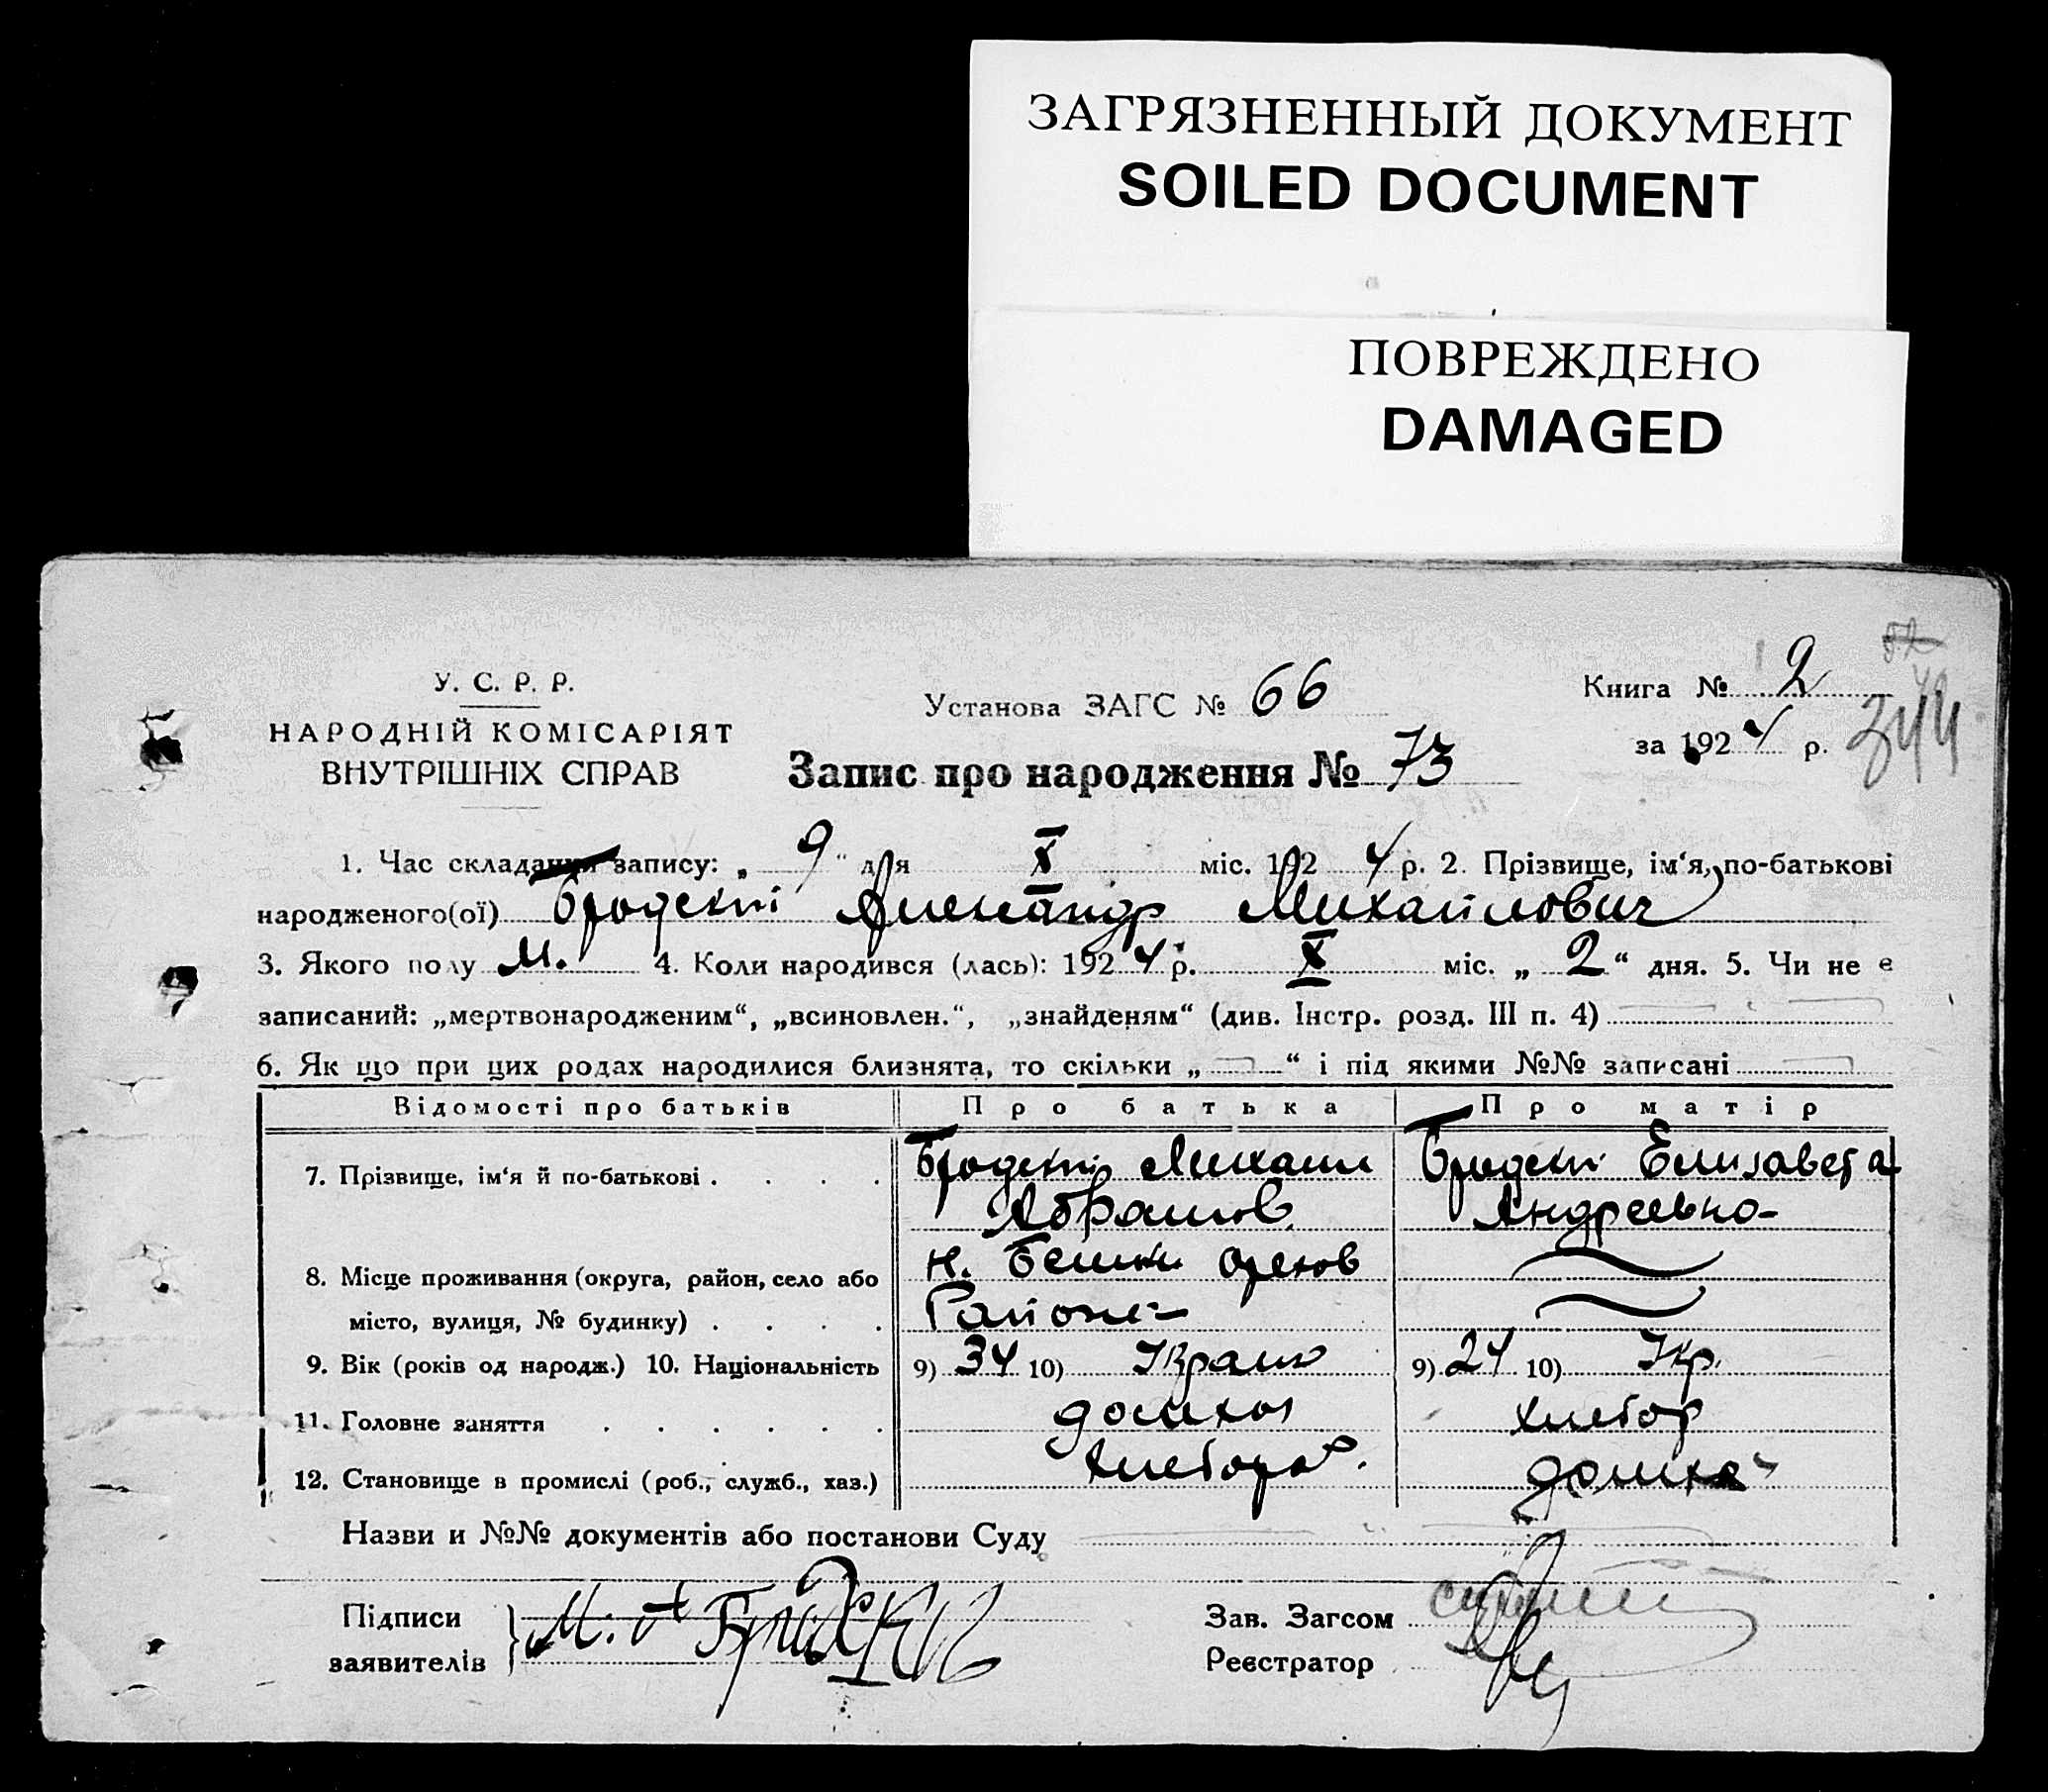 ЗАГРЯЗНЕННЫЙ ДОКУМЕНТ
SOILED DOCUMENT
ПОВРЕЖДЕНО
DAMAGED
У. С. Р. Р.
НАРОДНІЙ КОМІСАРІЯТ
ВНУТРІШНІХ СПРАВ
Установа ЗАГС № 66
Запис про народження № 73
Книга № 2
за 1924 р.
344
1. Час складання запису: „ 9 “ дня X міс. 1924 р. 2. Прізвище, ім‘я, по-батькові
народженого(ої) Бродскій Александр Михайлович
3. Якого полу М. 4. Коли народився (лась): 1924 р. X міс. „ 2 “ дня. 5. Чи не є
записаний: „мертвонародженим“, „всиновлен.“, „знайденям“ (див. Інстр. розд. III п. 4)
6. Як що при цих родах народилися близнята, то скільки „ “ і під якими №№ записані
Відомості про батьків Про батька Про матір
7. Прізвище, ім‘я й по-батькові . . . . Михаил Елизавета
Абрамов. Андреевна
8. Місце проживання (округа, район, село або Орехов
місто, вулиця, № будинку) . . . . Района
9. Вік (років од народж.) 10. Національність 9) 34 10) Украин 9) 24 10) Укр.
11. Головне заняття . . . . . . хлебор
12. Становище в промислі (роб., служб., хаз.) хлебороб.
Назви и №№ документів або постанови Суду
Підписи
заявителів
М. А Бродски
Зав. Загсом
Реєстратор